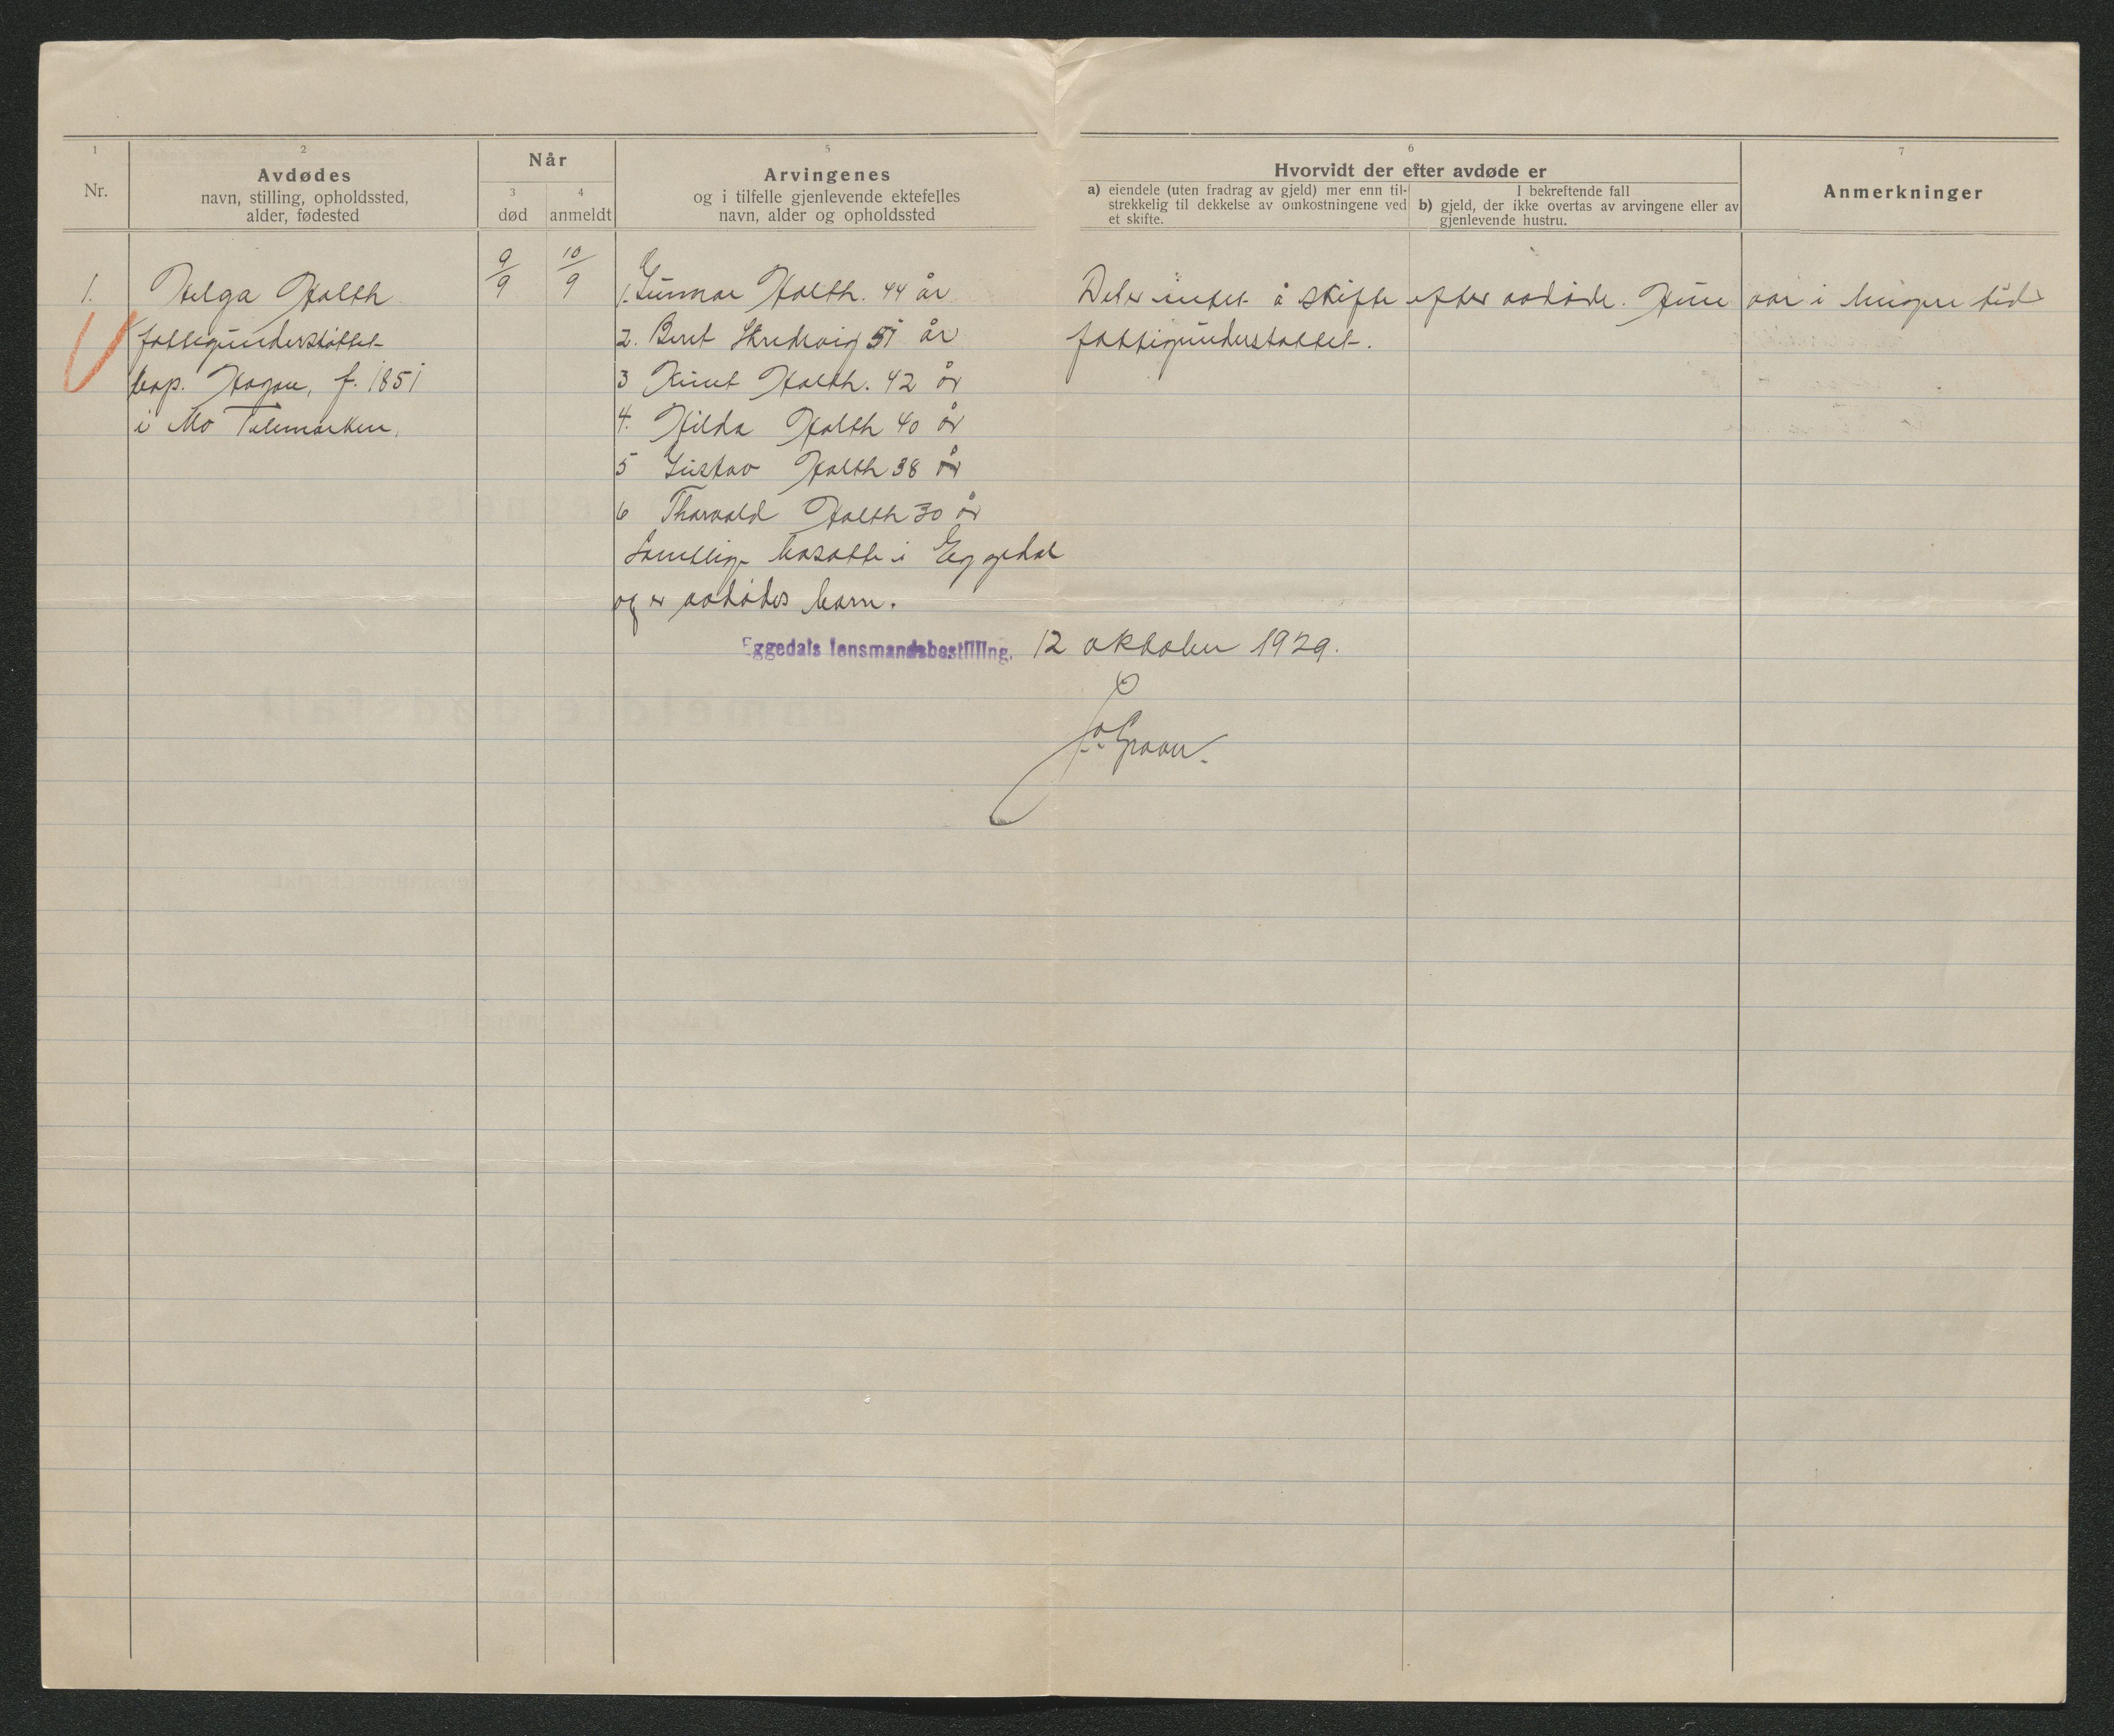 1
Nr.
2
Avdødes
navn, stilling, opholdssted,
alder, fødested
Når
3
død
4
anmeldt
5
Arvingenes
og i tilfelle gjenlevende ektefelles
navn, alder og opholdssted
6
Hvorvidt der efter avdøde er
a) eiendele (uten fradrag av gjeld) mer enn til-
strekkelig til dekkelse av omkostningene ved
et skifte.
I bekreftende fall
b) gjeld, der ikke overtas av arvingene eller av
gjenlevende hustru.
7
Anmerkninger
1.
Helga Holth
fattigunderstøttet
f. 1851
i Mo Telemarken.
9/9
10/9
1. Gunnar Holth. 44 år
2. Beret Skredsvig 51 år
3 Knut Holth. 42 år
4. Hilda Holth 40 år
5 Gustav Holth 38 år
6 Thorvald Holth 30 år
Samtlige bosatte i Eggedal
og er avdødes barn.
Det er intet å skifte efter avdøde. Hun var i lengere tid
fattigunderstøttet.
Eggedals lensmandsbestilling. 12 oktober 1929.